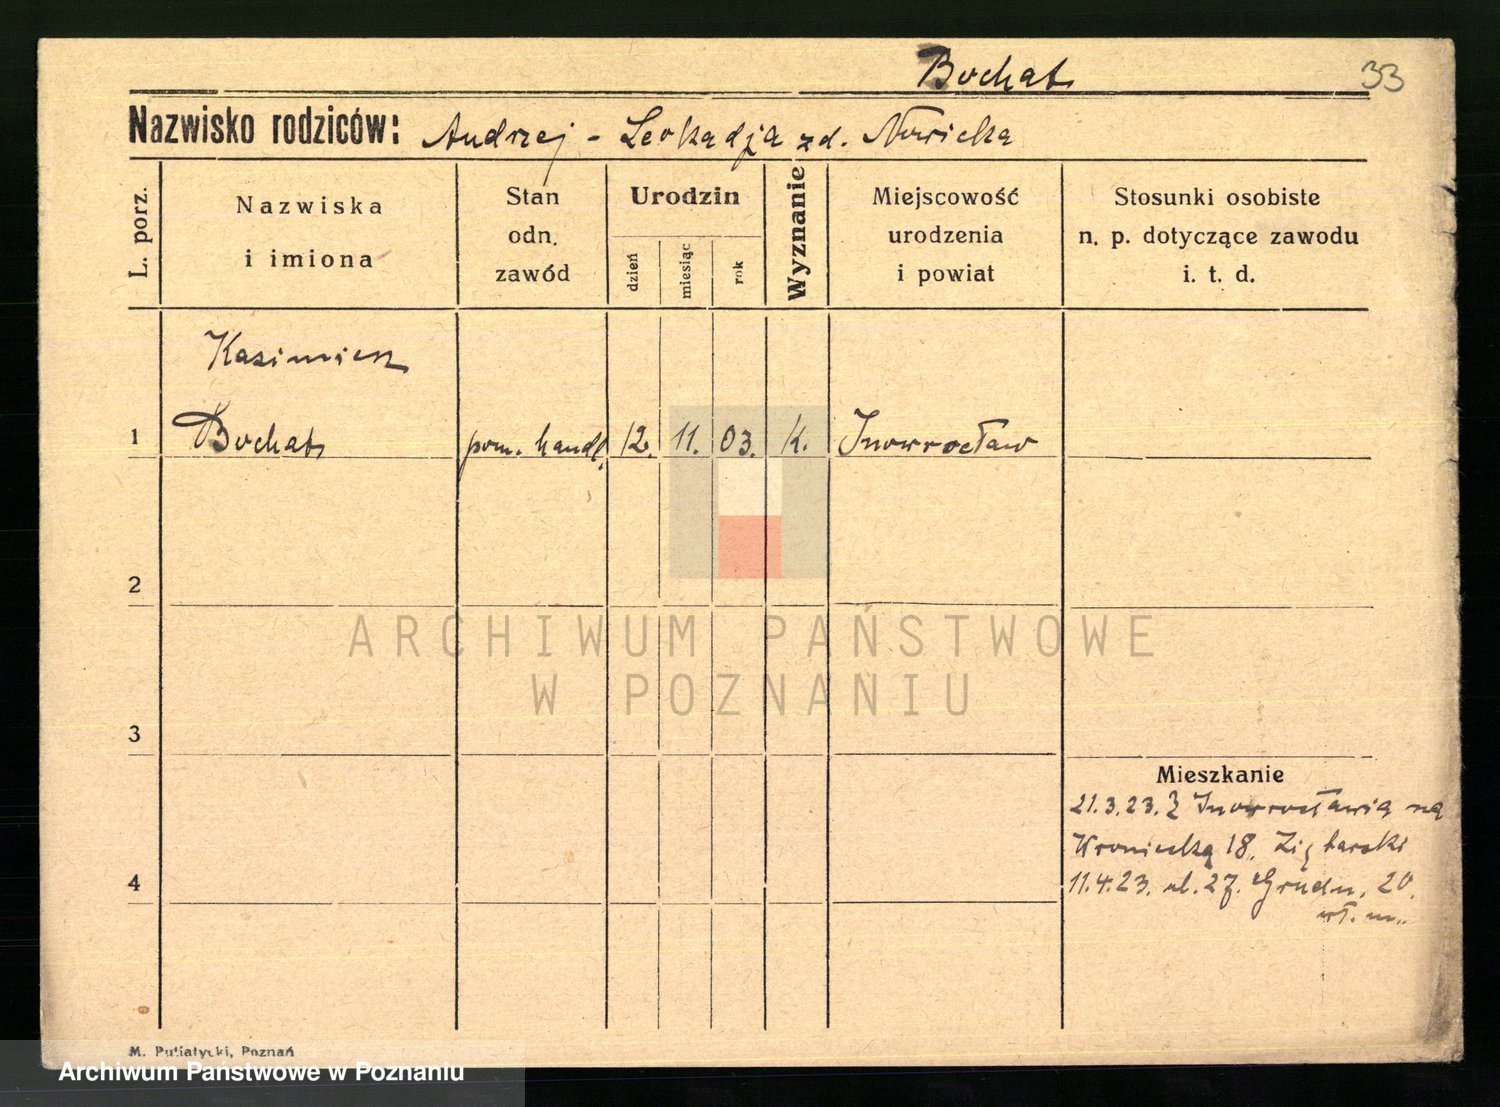 Bochat
33
Nazwisko rodziców: Andrzej - Leokadja zd. Nowicka
L. porz.
Nazwiska
i imiona
Stan
odn.
zawód
Urodzin
dzień
miesiąc
rok
Wyznanie
Miejscowość
urodzenia
i powiat
Stosunki osobiste
n. p. dotyczące zawodu
i. t. d.
Kazimierz
1 Bochat pom. handl. 12. 11. 03. K. Inowrocław
2
ARCHIWUM PAŃSTWOWE
W POZNANIU
3
Mieszkanie
21.3.23. Z Inowrocławia na
18.
4
11.4.23. ul. 27. Grudn. 20.
wł. m.
M. Putiatycki, Poznań
Archiwum Państwowe w Poznaniu